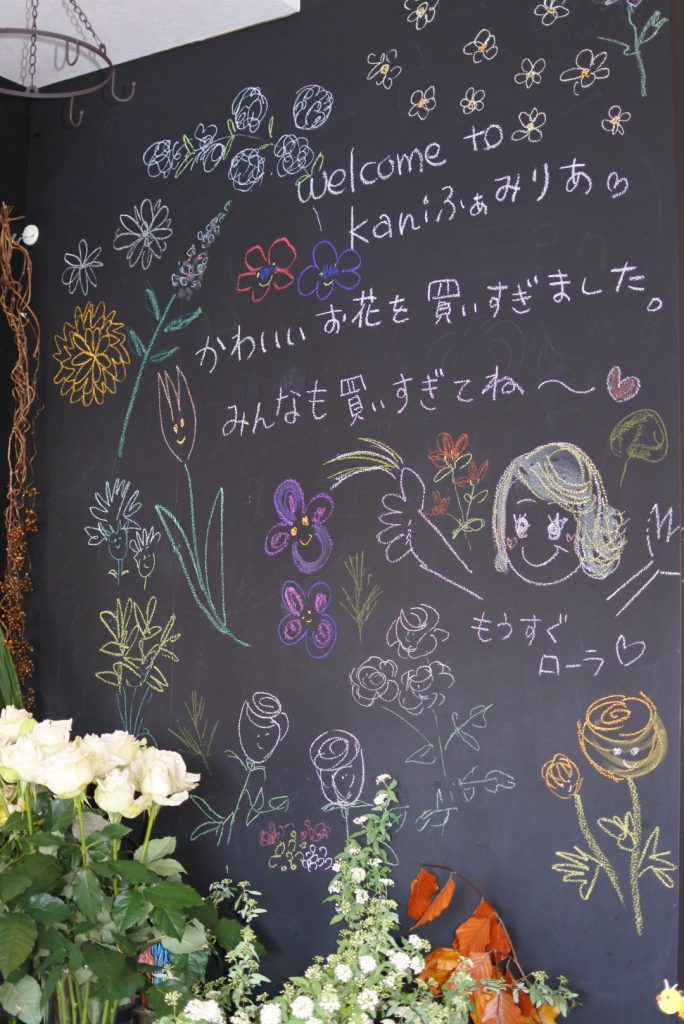 welcome to
kaniふぁみりあ♡
かわいいお花を買いすぎました。
みんなも買いすぎてね〜♥
もうすぐ
ローラ♡